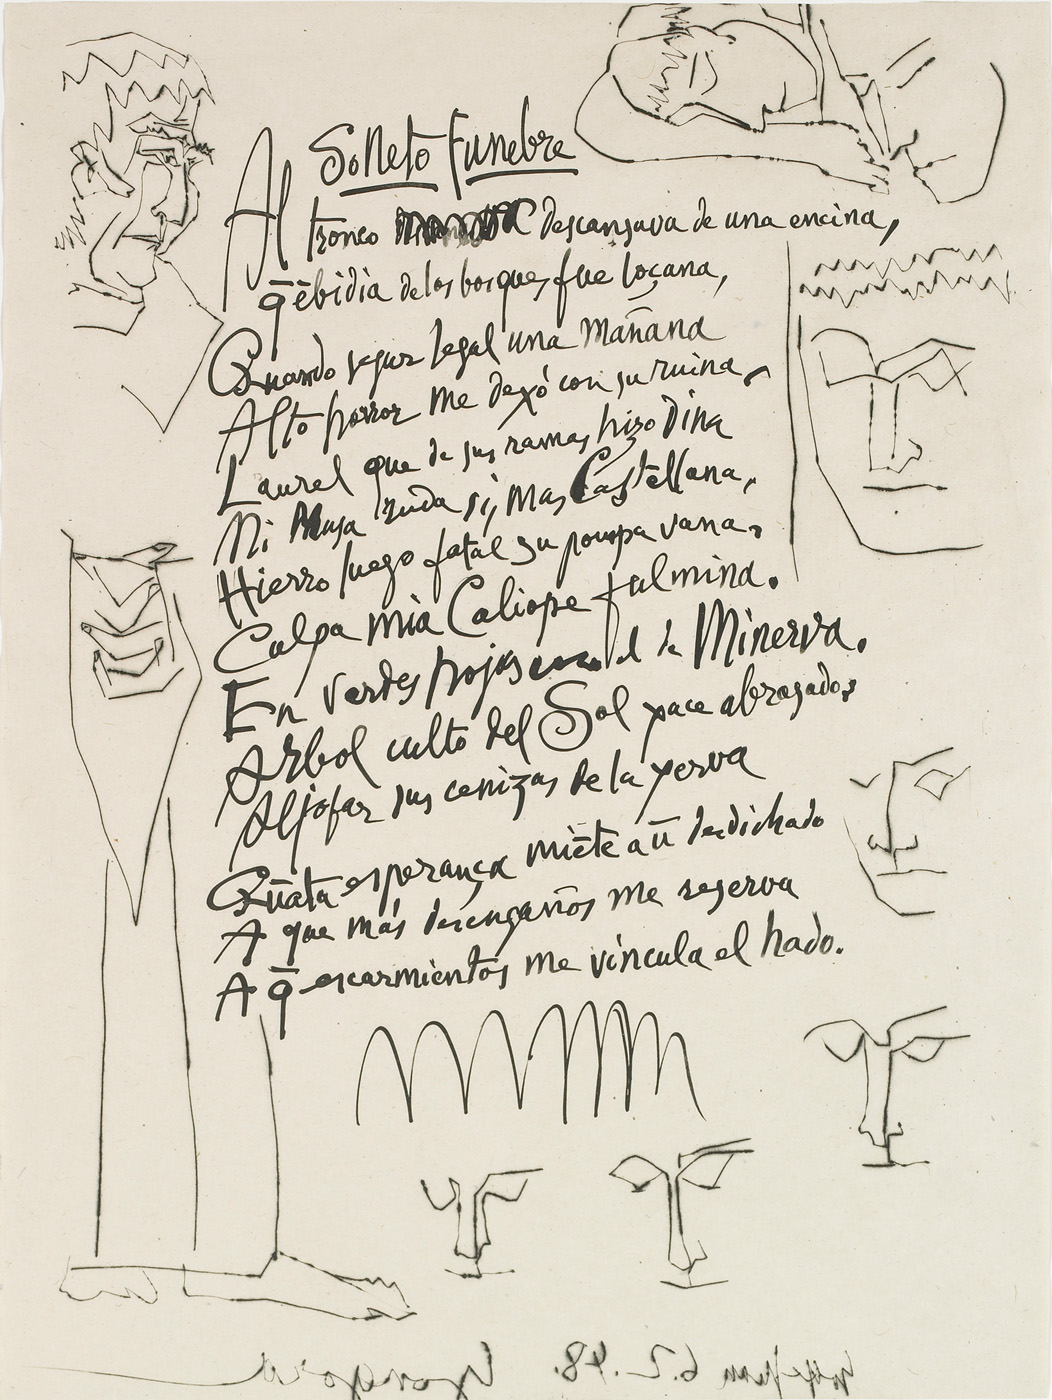 Soneto Funebre
Al tronco descansava de una encina,
q̄ ēbidia de los bosques fue loçana,
Quando segur legal una mañana
Alto horror me dexó con su ruina,
Laurel que de sus ramas hizo dina
Mi Musa ruda sí, mas Castellana,
Hierro luego fatal su pompa vana,
Culpa mia Caliope fulmina.
En verdes hojas el de Minerva.
Arbol culto del Sol yace abrasado,
Aljofar sus cenizas de la yerva
Quāta esperança miēte a ū desdichado
A que más desengaños me reserva
A q̄ escarmientos me vincula el hado.
Gongora Golfe Juan 6.2.48.